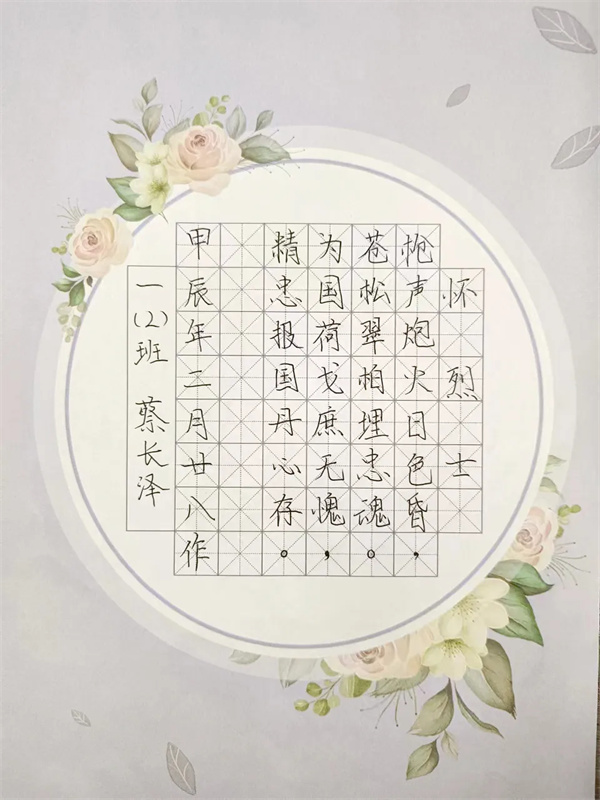 怀烈士
枪声炮火日色昏，
苍松翠柏埋忠魂。
为国荷戈庶无愧，
精忠报国丹心存。
甲辰年二月廿八作
一(2)班 蔡长泽